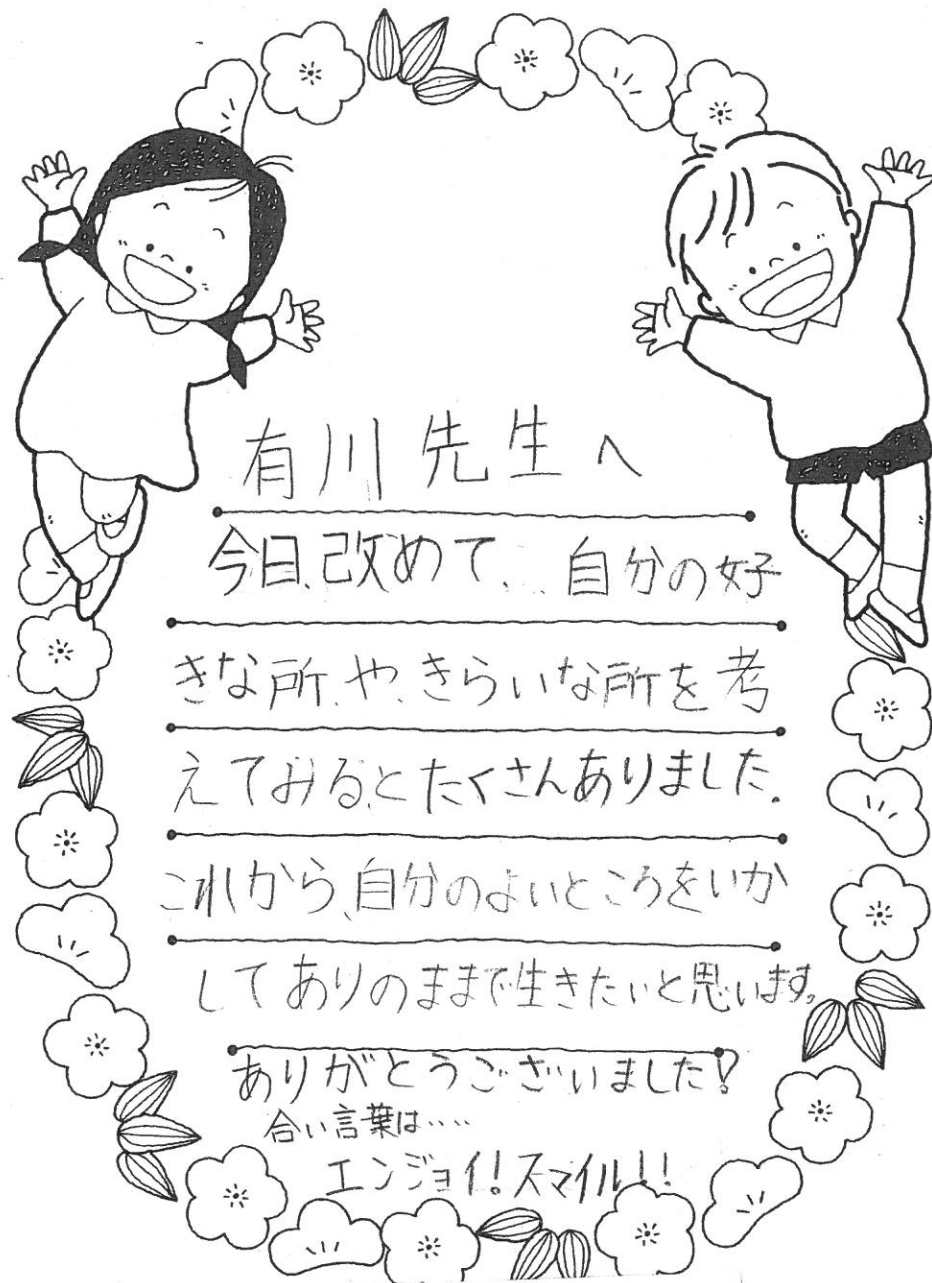 有川先生へ
今日、改めて、自分の好
きな所、や、きらいな所を考
えてみると、たくさんありました。
これから、自分のよいところをいか
してありのままで生きたいと思います。
ありがとうございました!
合い言葉は‥‥
エンジョイ!スマイル!!